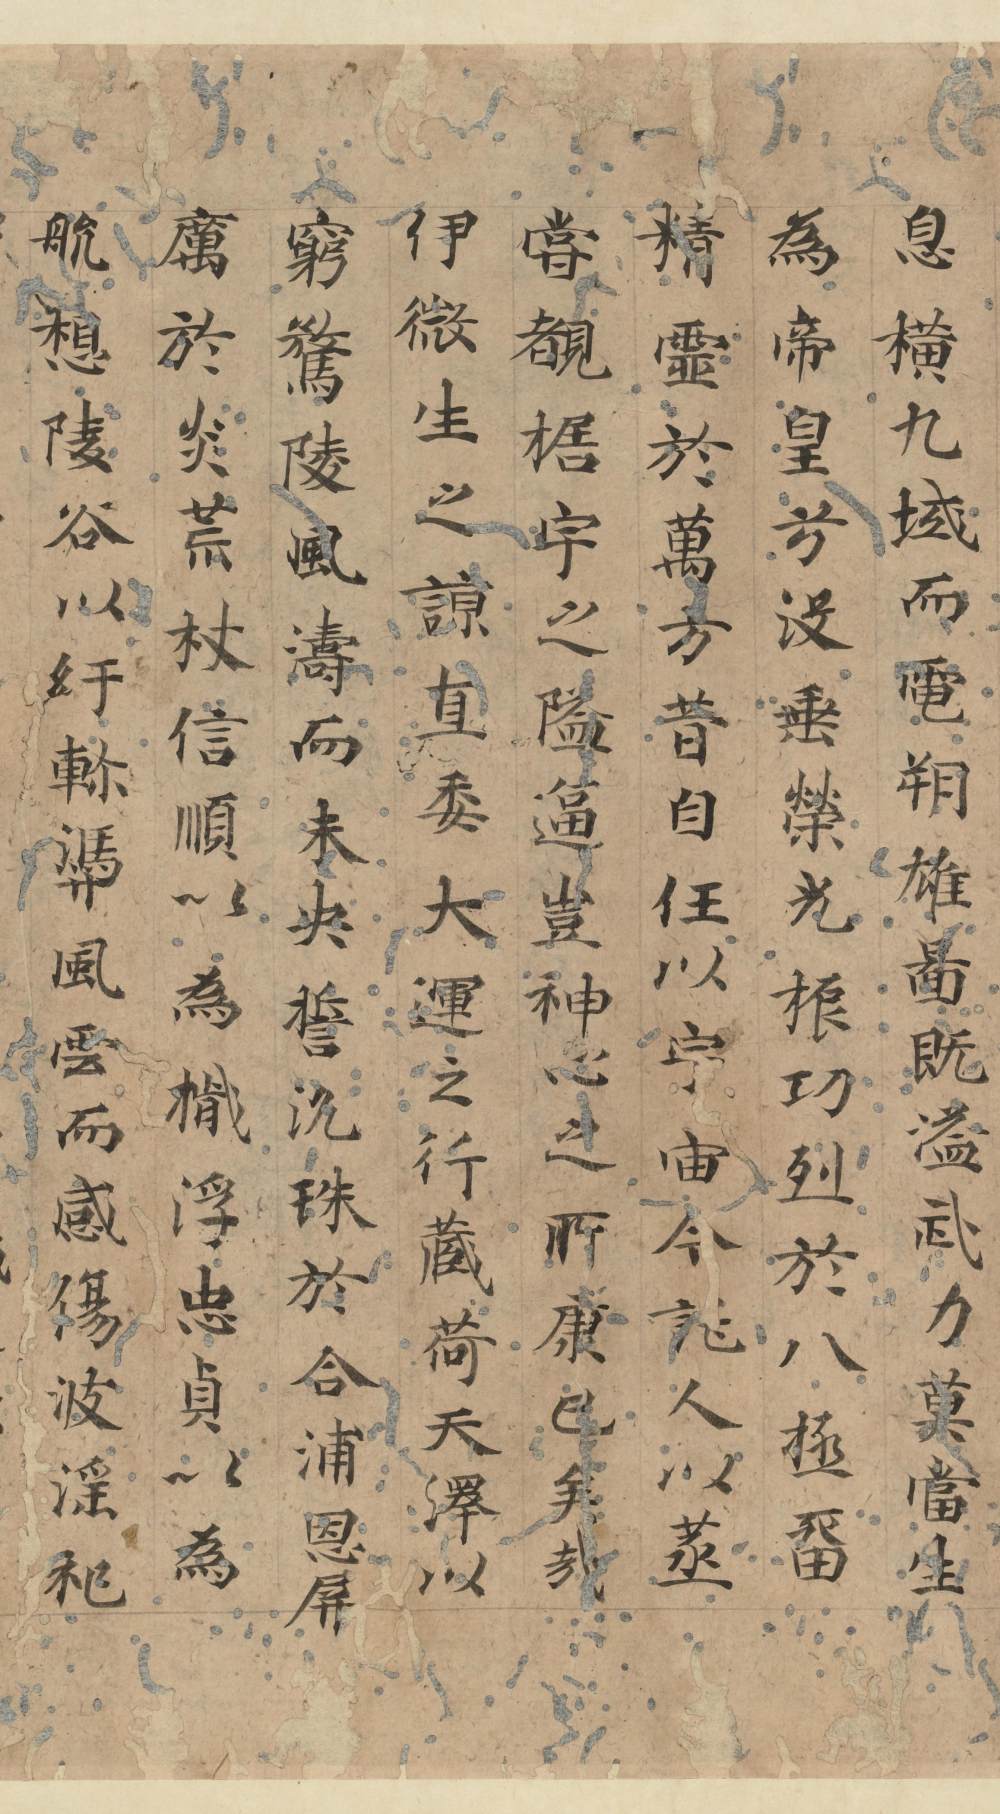 息橫九域而電朔雄啚既溢武力莫當生
為帝皇兮没垂榮光振功烈於八極留
精靈於萬方昔自任以宇宙今託人以蒸
嘗覩椐宇之隘逼豈神心之所康已矣哉
伊微生之諒直委大運之行藏荷天澤以
窮騖陵風濤而未央誓沉珠於合浦恩屏
厲於炎荒杖信順以為檝浮忠貞以為
航想陵谷以紆軫風雲而感傷波淫祀